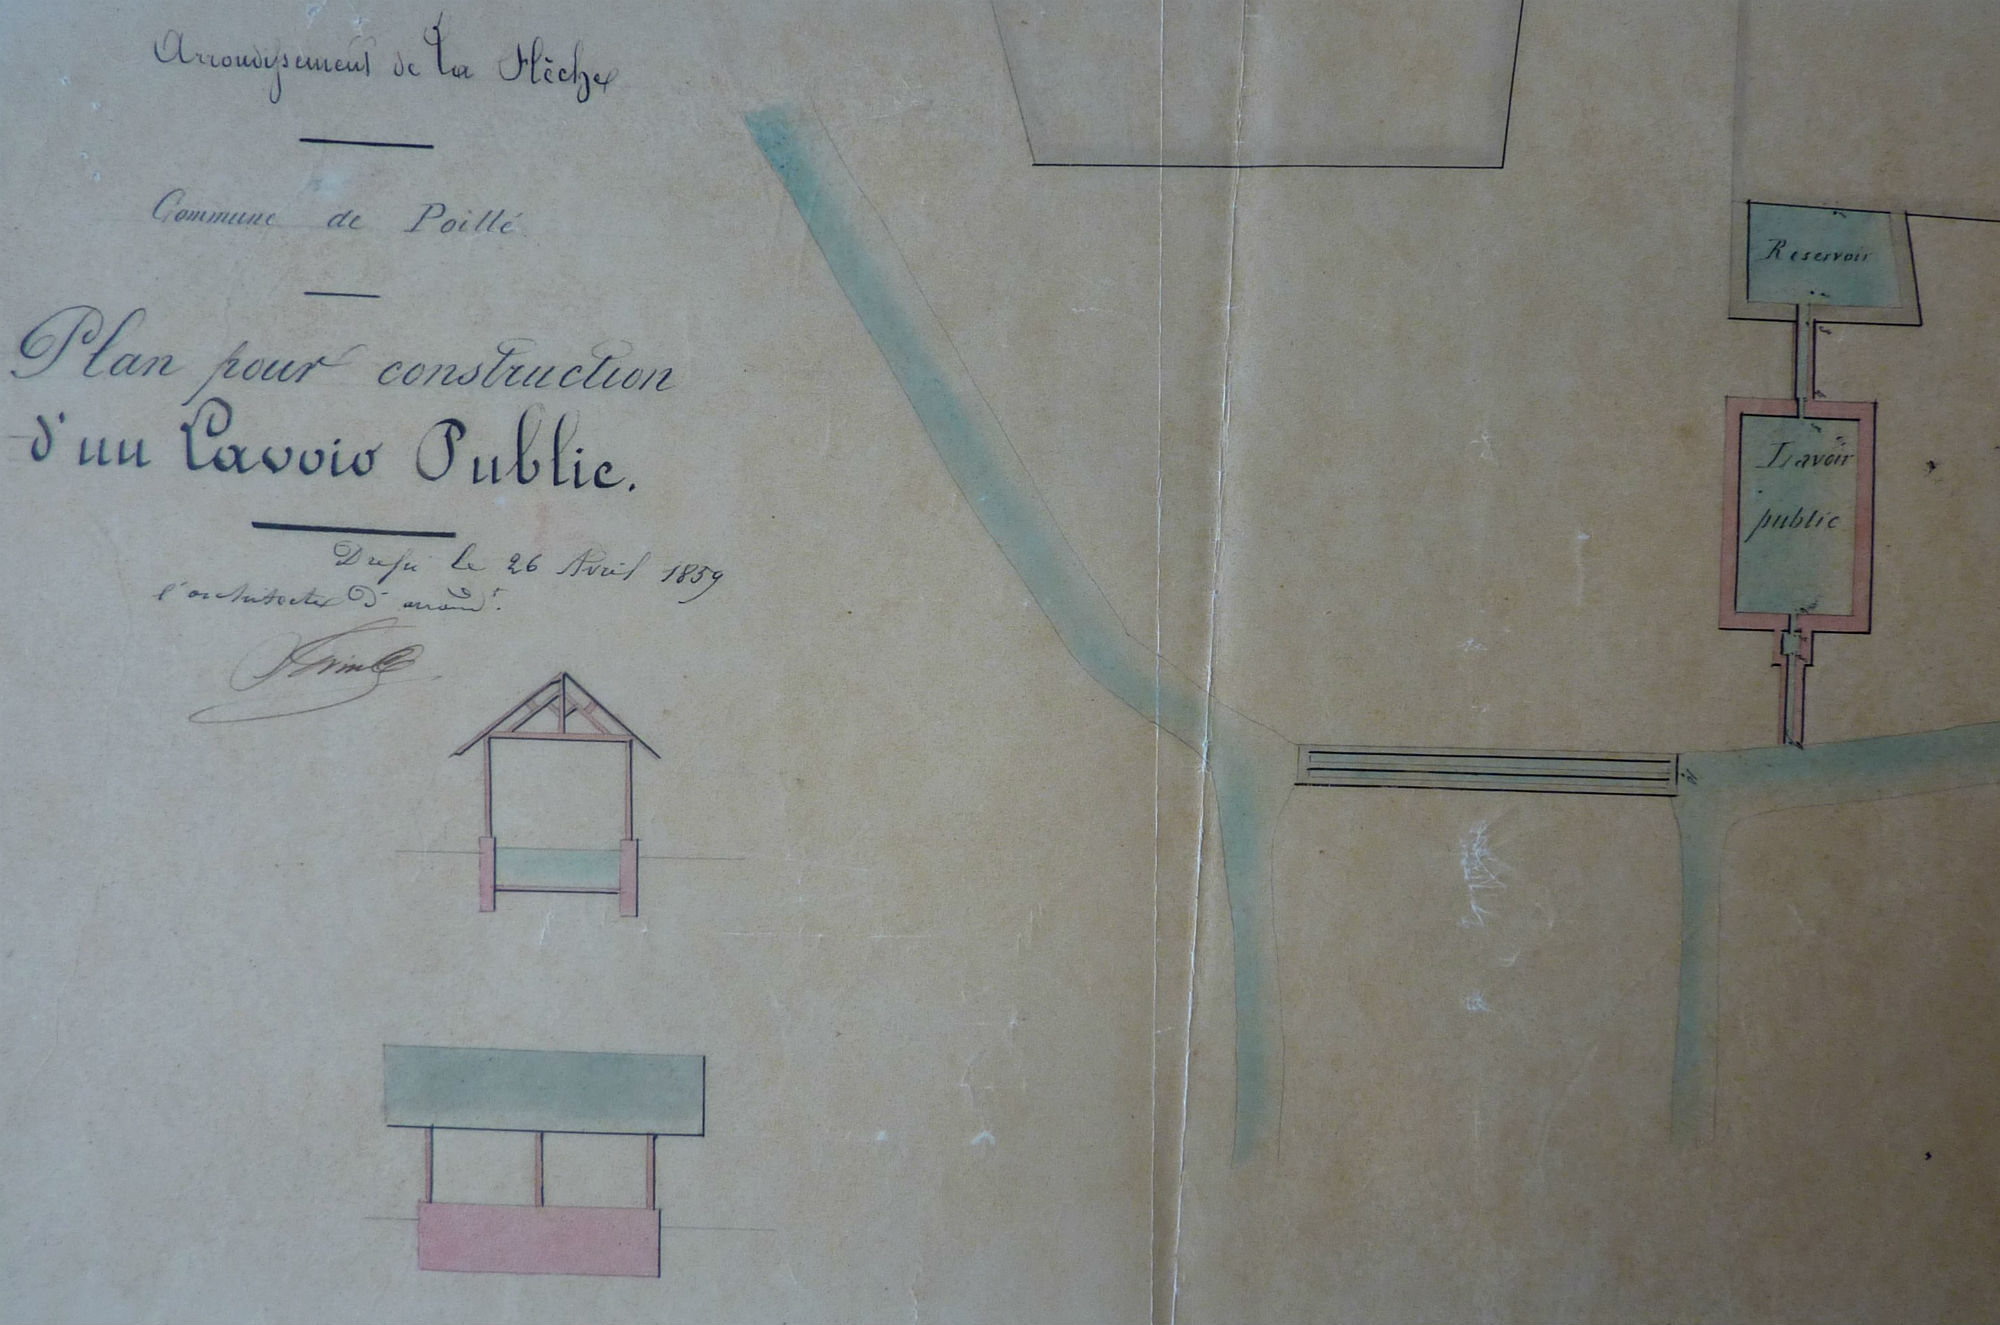 Arrondissement de La Flèche
Commune de Poillé
Plan pour construction
d'un Lavoir Public.
Dressé le 26 Avril 1859
l'architecte d'arrond.t
Reservoir
Lavoir
public